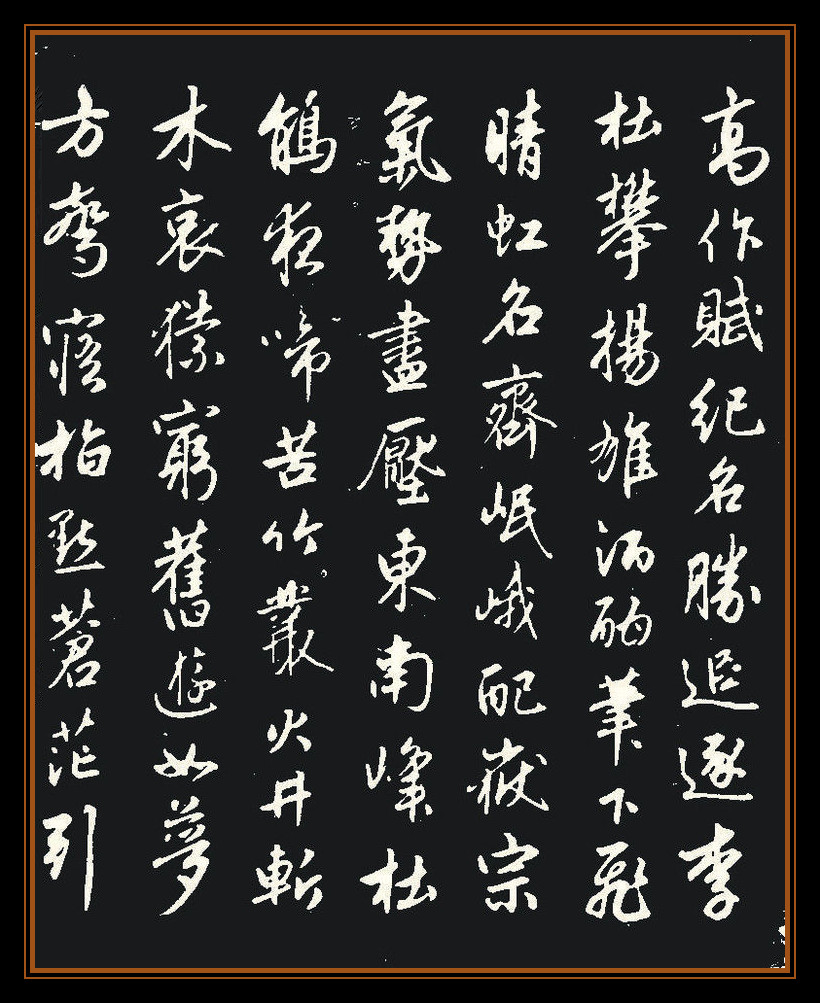 高作賦紀名勝追逐李
杜攀揚雄酒酣筆下飛
晴虹名齊岷峨配嶽宗
氣勢盡壓東南峰杜
鵑夜啼苦竹叢火井斬
木哀猿窮舊遊如夢
方驚寤指點蒼茫引